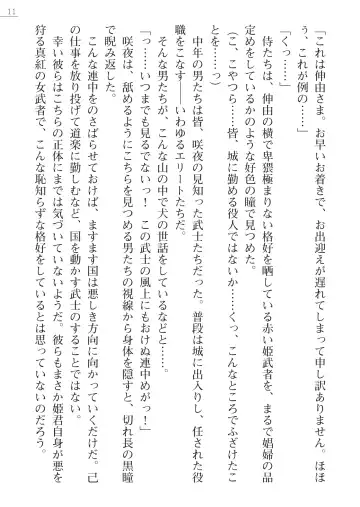 11
「これは伸由さま。お早いお着きで、お出迎えが遅れてしまって申し訳ありません。ほほ
ぅ、これが例の……」
「くっ……」
侍たちは、伸由の横で卑猥極まりない格好を晒している赤い姫武者を、まるで娼婦の品
定めをしているかのような好色の瞳で見つめた。
(こ、こやつら……皆、城に勤める役人ではないか……くっ、こんなところでふざけたこ
とを……っ)
中年の男たちは皆、咲夜の見知った武士たちだった。普段は城に出入りし、任された役
職をこなす――いわゆるエリートたちだ。
そんな男たちが、こんな山の中で犬の世話をしているなどと……。
「っ……いつまでも見るでないっ!　この武士の風上にもおけぬ連中めがっ!」
咲夜は、舐めるようにこちらを見つめる男たちの視線から身体を隠すと、切れ長の黒瞳
で睨み返した。
こんな連中をのさばらせておけば、ますます国は悪しき方向に向かうだけだ。己
の仕事を放り投げて道楽に勤しむなど、国を動かす武士のすることではない。
幸い彼らはこちらの正体にまでは気づいていないようだ。彼らもまさか姫君自身が悪を
狩る真紅の女武者で、こんな恥知らずな格好をしているとは思っていないのだろう。